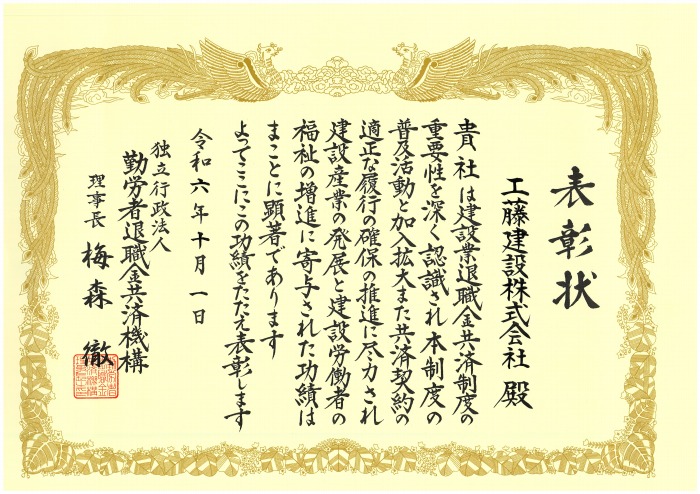 表彰状
工藤建設株式会社 殿
貴社は建設業退職金共済制度の
重要性を深く認識され本制度の
普及活動と加入拡大また共済契約の
適正な履行の確保の推進に尽力され
建設産業の発展と建設労働者の
福祉の増進に寄与された功績は
まことに顕著であります
よってここにこの功績をたたえ表彰します
令和六年十月一日
独立行政法人
勤労者退職金共済機構
理事長 梅森 徹